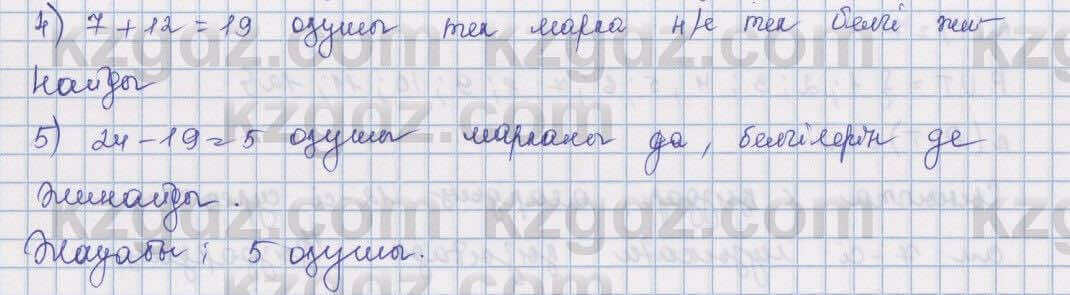 4) 7+12=19 оқушы тек марка н/е тек белгі жи-
найды
5) 24-19=5 оқушы марканы да, белгілерін де
жинайды.
Жауабы: 5 оқушы.
kzgdz.com